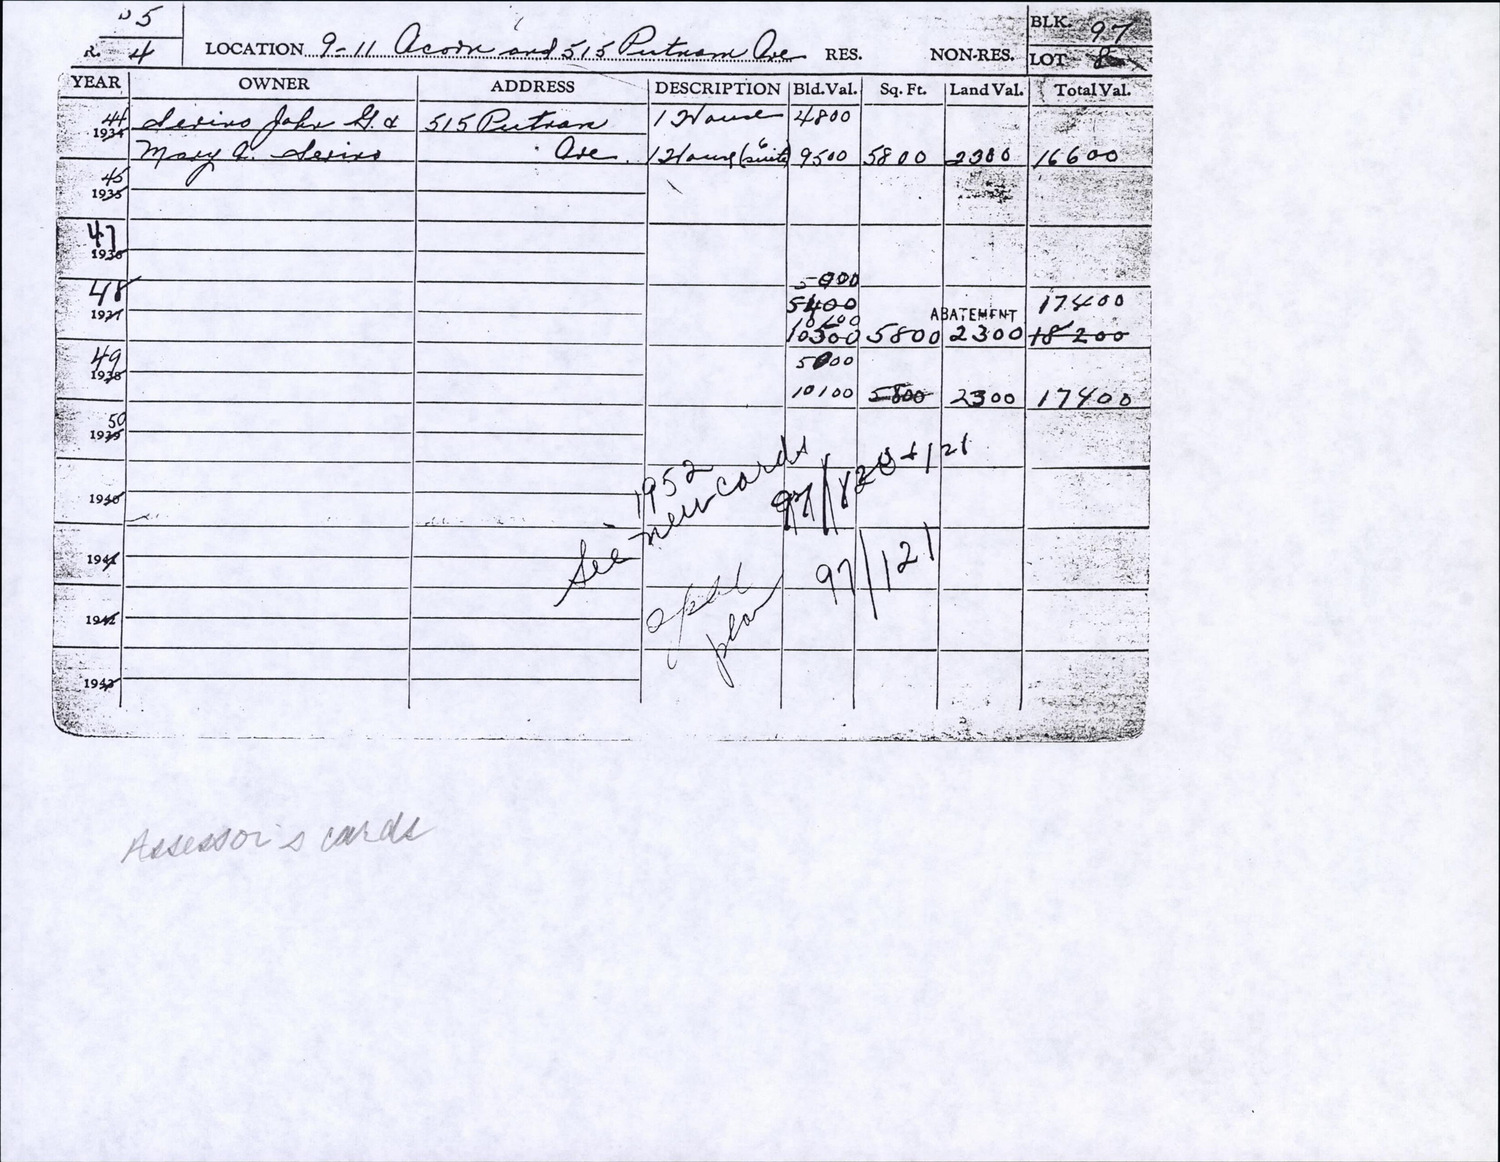 5
R. 4
LOCATION 9-11 Acorn and 515 Putnam Ave RES. NON-RES.
BLK. 97
LOT 8
YEAR OWNER ADDRESS DESCRIPTION Bld.Val. Sq. Ft. Land Val. Total Val.
44 1934 Serino John G. & 515 Putnam 1 House 4800
Mary A. Serino Ave. 1 House (6 suite) 9500 5800 2300 16600
45 1935
47 1936
48 5000
1937 5400 17400
10100 ABATEMENT
10500 5800 2300 18200
49 1938 5000
10100 5800 2300 17400
50 1939
1940
1941
1942
1943
1952
See new cards 97/120+121
plan 97/121
Assessor's cards